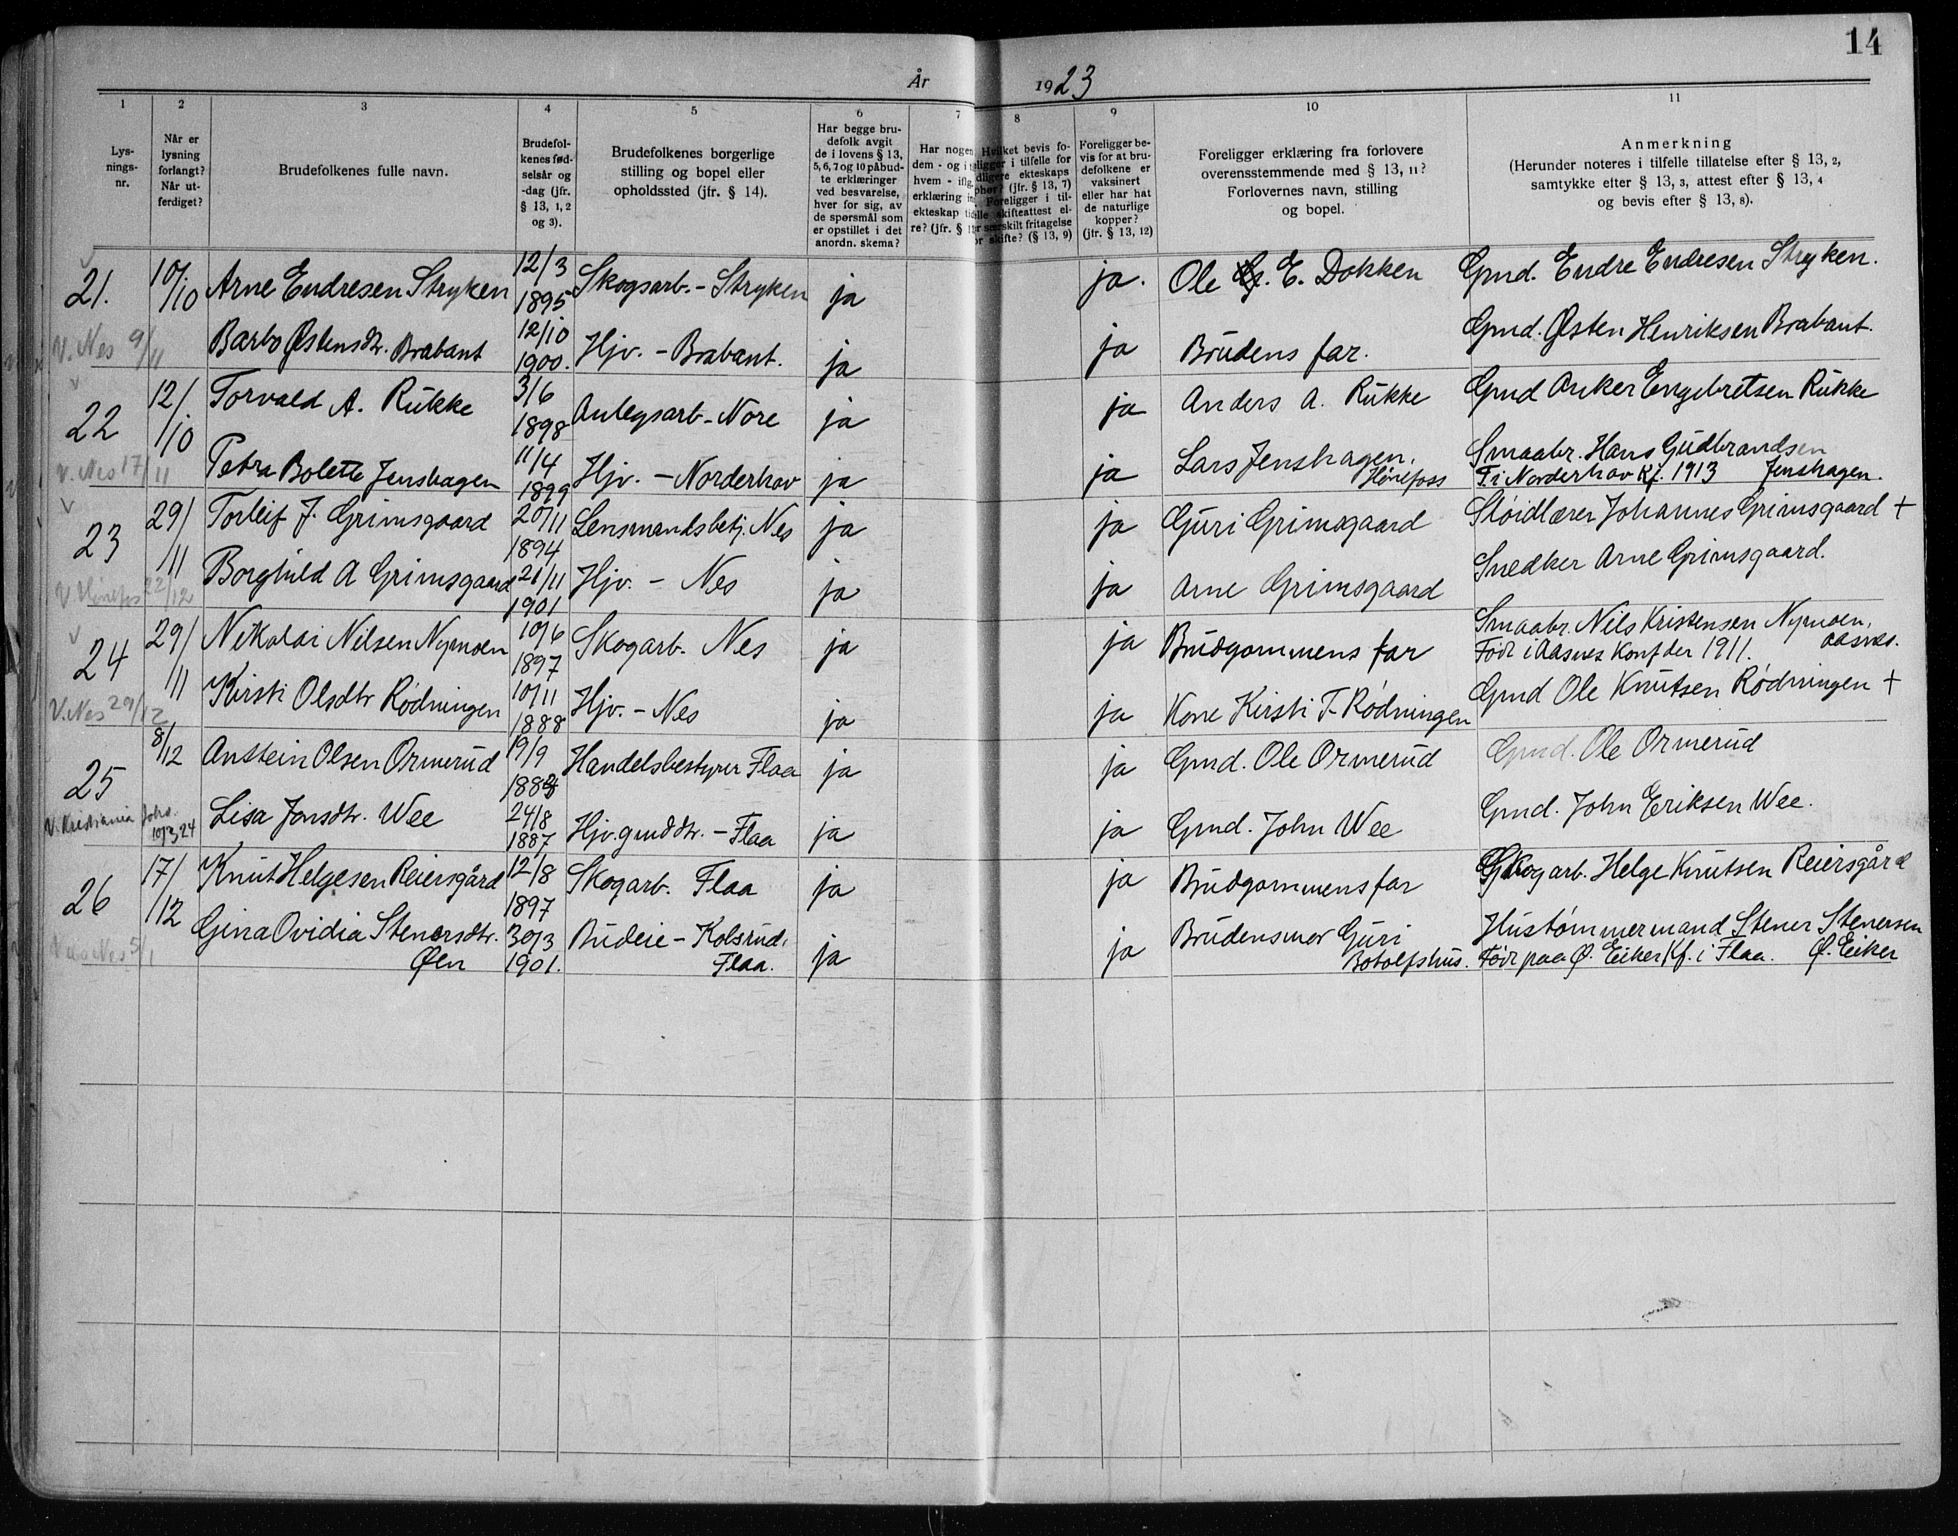 14
År 1923
1 2 3 4 5 6 7 8 9 10 11
Lys-
nings-
nr.
Når er
lysning
forlangt?
Når ut-
ferdiget?
Brudefolkenes fulle navn.
Brudefol-
kenes fød-
selsår og
-dag (jfr.
§ 13, 1, 2
og 3).
Brudefolkenes borgerlige
stilling og bopel eller
opholdssted (jfr. § 14).
Har begge bru-
defolk avgit
de i lovens § 13,
5, 6, 7 og 10 påbud-
te erklæringer
ved besvarelse,
hver for sig, av
de spørsmål som
er opstillet i det
anordn. skema?
Har nogen
dem - og i
hvem - iflg.
erklæring in
ekteskap ti
re? (jfr. §
Hvilket bevis fo-
ligger i tilfelle for
dligere ekteskaps
phør? (jfr. § 13, 7)
Foreligger i til-
elle skifteattest el-
er særskilt fritagelse
or skifte? (§ 13, 9)
Foreligger be-
vis for at bru-
defolkene er
vaksinert
eller har hat
de naturlige
kopper?
(jfr. § 13, 12)
Foreligger erklæring fra forlovere
overensstemmende med § 13, 11?
Forlovernes navn, stilling
og bopel.
Anmerkning
(Herunder noteres i tilfelle tillatelse efter § 13, 2,
samtykke efter § 13, 3, attest efter § 13, 4
og bevis efter § 13, 8).
21. 10/10 Arne Endresen Stryken 12/3 1895 Skogsarb. - Stryken ja ja. Ole E. Dokken Gmd. Endre Endresen Stryken.
V. Nes 9/11 Barbo Østensdtr. Brabant 12/10 1900. Hjv. - Brabant. ja ja Brudens far. Gmd. Østen Henriksen Brabant.
22 12/10 Torvald A. Rukke 3/6 1898 Anlegsarb - Nore ja ja Anders A. Rukke Gmd Anker Engebretsen Rukke
V. Nes 17/11 Petra Bolette Jenshagen 11/4 1899 Hjv. - Norderhov ja ja Lars Jenshagen, Hønefoss Smaabr. Hans Gudbrandsen
F. i Norderhov Kf. 1913 Jenshagen.
23 29/11 Torleif J. Grimsgaard 20/11 1894 Lensmandsbetj. Nes ja ja Guri Grimsgaard Sløidlærer Johannes Grimsgaard +
V. Hønefos 22/12 Borghild A Grimsgaard 21/11 1901 Hjv. - Nes ja ja Arne Grimsgaard Snedker Arne Grimsgaard.
24 29/11 Nikolai Nilsen Nymoen 10/6 1897 Skogarb. Nes ja ja Brudgommens far Smaabr. Nils Kristensen Nymoen, Aasnes.
Født i Aasnes Konf der 1911.
V. Nes 29/12 Kirsti Olsdtr Rødningen 10/11 1888 Hjv. - Nes ja ja Kone Kirsti T. Rødningen Gmd Ole Knutsen Rødningen +
25 8/12 Anstein Olsen Ormerud 19/9 Handelsbestyrer Flaa ja ja Gmd. Ole Ormerud Gmd. Ole Ormerud
V. Kristiania Lisa Jonsdtr. Wee 24/8 1887 Hjv. gmddtr. - Flaa ja ja Gmd. John Wee Gmd. John Eriksen Wee.
26 17/12 Knut Helgesen Reiersgård 12/8 1897 Skogarb. Flaa ja ja Brudgommens far Skogarb. Helge Knutsen Reiersgård
Nes 5/1 Gina Ovidia Stenersdtr. Øen 30/3 1901. Budeie - Kolsrud, Flaa. ja ja Brudens mor Guri Botolfshus. Hustømmermand Stener Stenersen
Født paa Ø. Eiker Kf. i Flaa. Ø. Eiker